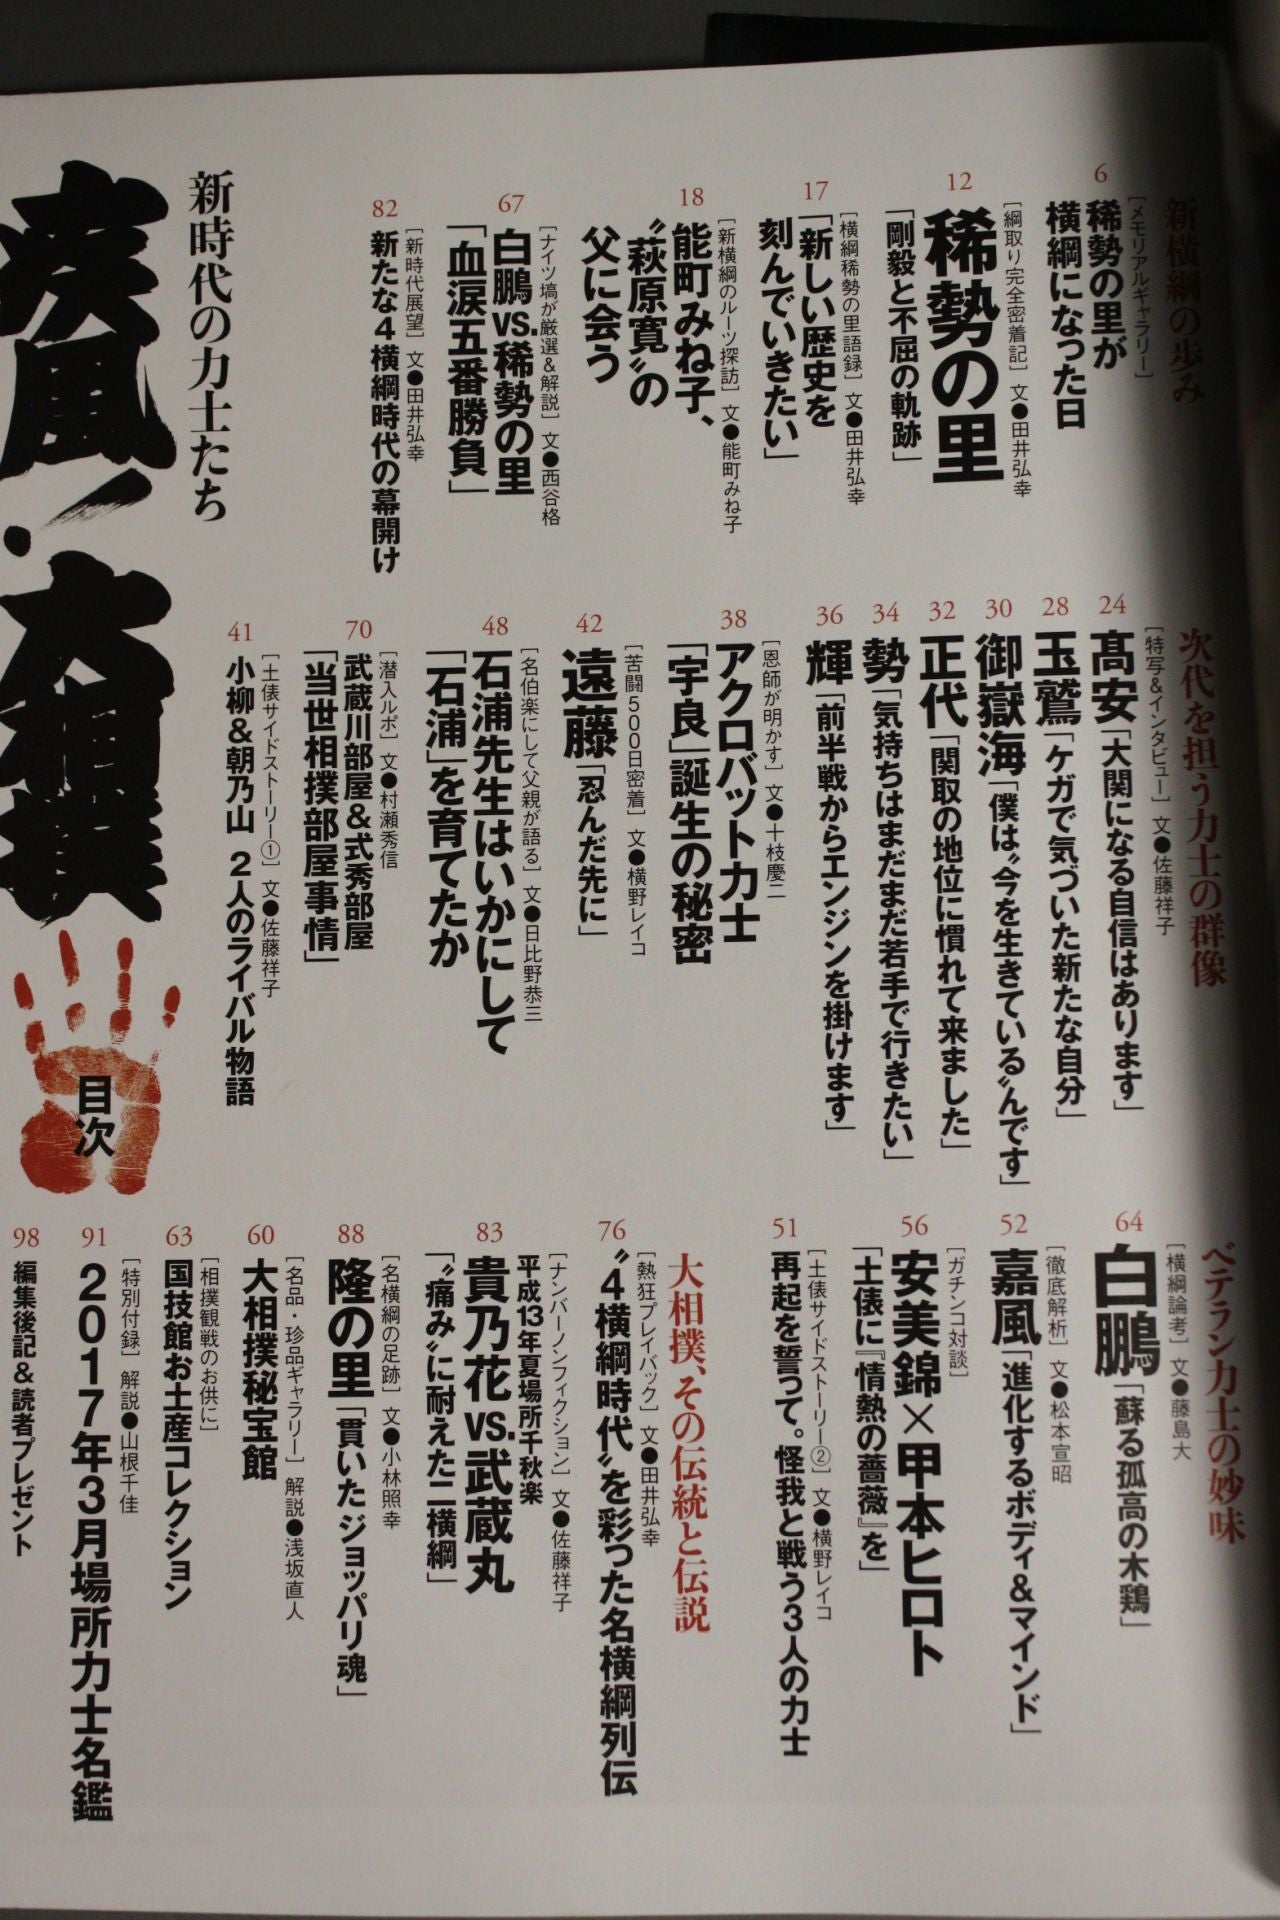 新時代の力士たち
疾風!大相撲
目次
新横綱の歩み
6
[メモリアルギャラリー]
稀勢の里が
横綱になった日
12
[綱取り完全密着記] 文●田井弘幸
稀勢の里
「剛毅と不屈の軌跡」
17
[横綱稀勢の里語録] 文●田井弘幸
「新しい歴史を
刻んでいきたい」
18
[新横綱のルーツ探訪] 文●能町みね子
能町みね子、
〝萩原寛〟の
父に会う
67
[ナイツ塙が厳選&解説] 文●西谷格
白鵬vs.稀勢の里
「血涙五番勝負」
82
[新時代展望] 文●田井弘幸
新たな4横綱時代の幕開け
次代を担う力士の群像
[特写&インタビュー] 文●佐藤祥子
24
髙安「大関になる自信はあります」
28
玉鷲「ケガで気づいた新たな自分」
30
御嶽海「僕は〝今を生きている〟んです」
32
正代「関取の地位に慣れて来ました」
34
勢「気持ちはまだまだ若手で行きたい」
36
輝「前半戦からエンジンを掛けます」
38
[恩師が明かす] 文●十枝慶二
アクロバット力士
「宇良」誕生の秘密
42
[苦闘500日密着] 文●横野レイコ
遠藤「忍んだ先に」
48
[名伯楽にして父親が語る] 文●日比野恭三
石浦先生はいかにして
「石浦」を育てたか
70
[潜入ルポ] 文●村瀬秀信
武蔵川部屋&式秀部屋
「当世相撲部屋事情」
41
[土俵サイドストーリー①] 文●佐藤祥子
小柳&朝乃山 2人のライバル物語
ベテラン力士の妙味
64
[横綱論考] 文●藤島大
白鵬「蘇る孤高の木鶏」
52
[徹底解析] 文●松本宣昭
嘉風「進化するボディ&マインド」
56
[ガチンコ対談]
安美錦×甲本ヒロト
「土俵に『情熱の薔薇』を」
51
[土俵サイドストーリー②] 文●横野レイコ
再起を誓って。怪我と戦う3人の力士
大相撲、その伝統と伝説
76
[熱狂プレイバック] 文●田井弘幸
〝4横綱時代〟を彩った名横綱列伝
83
[ナンバーノンフィクション] 文●佐藤祥子
平成13年夏場所千秋楽
貴乃花vs.武蔵丸
「〝痛み〟に耐えた二横綱」
88
[名横綱の足跡] 文●小林照幸
隆の里「貫いたジョッパリ魂」
60
[名品・珍品ギャラリー] 解説●浅坂直人
大相撲秘宝館
63
[相撲観戦のお供に]
国技館お土産コレクション
91
[特別付録] 解説●山根千佳
2017年3月場所力士名鑑
98
編集後記&読者プレゼント